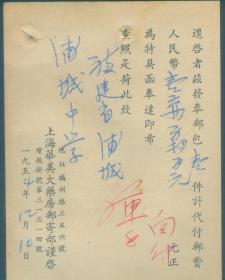 逕啓者茲發奉郵包壹件計代付郵費
人民幣 元正
為特具函奉達即希
查照是荷此致
福建省浦城
浦城中学
上海華美大藥房郵寄部謹啓
地址福州路三五六號
電報掛號第三三一四號
一九五4年12月10日